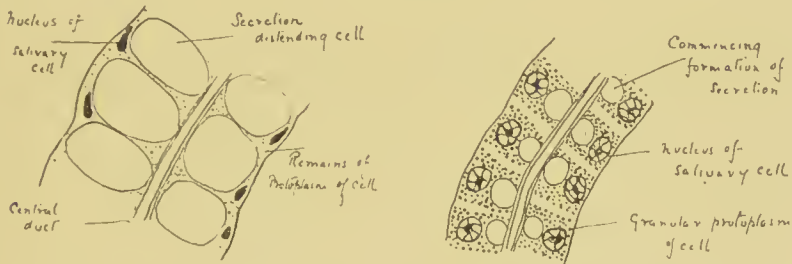 Nucleus of
Salivary
Cell
Secretion
distending cell
Remains of
Protoplasm of Cell
Central
duct
Commencing
formation of
Secretion
Nucleus of
Salivary cell
Granular protoplasm
of cell